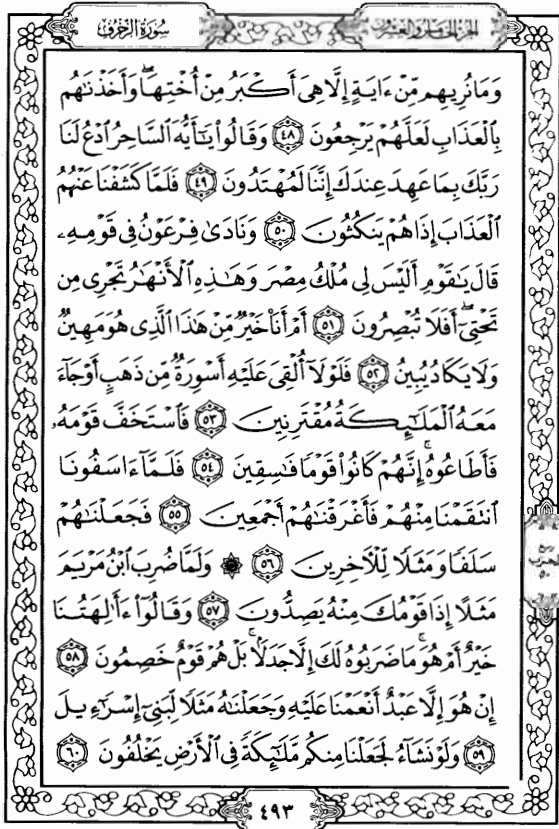 سُورَةُ الزُّخْرُفِ
الجُزْءُ الخَامِسُ وَالعِشْرُونَ
وَمَا نُرِيهِم مِّنْ ءَايَةٍ إِلَّا هِىَ أَكْبَرُ مِنْ أُخْتِهَاۖ وَأَخَذْنَٰهُم
بِٱلْعَذَابِ لَعَلَّهُمْ يَرْجِعُونَ ٤٨ وَقَالُوا۟ يَٰٓأَيُّهَ ٱلسَّاحِرُ ٱدْعُ لَنَا
رَبَّكَ بِمَا عَهِدَ عِندَكَ إِنَّنَا لَمُهْتَدُونَ ٤٩ فَلَمَّا كَشَفْنَا عَنْهُمُ
ٱلْعَذَابَ إِذَا هُمْ يَنكُثُونَ ٥٠ وَنَادَىٰ فِرْعَوْنُ فِى قَوْمِهِۦ
قَالَ يَٰقَوْمِ أَلَيْسَ لِى مُلْكُ مِصْرَ وَهَٰذِهِ ٱلْأَنْهَٰرُ تَجْرِى مِن
تَحْتِىٓۖ أَفَلَا تُبْصِرُونَ ٥١ أَمْ أَنَا۠ خَيْرٌ مِّنْ هَٰذَا ٱلَّذِى هُوَ مَهِينٌ
وَلَا يَكَادُ يُبِينُ ٥٢ فَلَوْلَآ أُلْقِىَ عَلَيْهِ أَسْوِرَةٌ مِّن ذَهَبٍ أَوْ جَآءَ
مَعَهُ ٱلْمَلَٰٓئِكَةُ مُقْتَرِنِينَ ٥٣ فَٱسْتَخَفَّ قَوْمَهُۥ
فَأَطَاعُوهُۚ إِنَّهُمْ كَانُوا۟ قَوْمًا فَٰسِقِينَ ٥٤ فَلَمَّآ ءَاسَفُونَا
ٱنتَقَمْنَا مِنْهُمْ فَأَغْرَقْنَٰهُمْ أَجْمَعِينَ ٥٥ فَجَعَلْنَٰهُمْ
سَلَفًا وَمَثَلًا لِّلْءَاخِرِينَ ٥٦ ۞ وَلَمَّا ضُرِبَ ٱبْنُ مَرْيَمَ
مَثَلًا إِذَا قَوْمُكَ مِنْهُ يَصِدُّونَ ٥٧ وَقَالُوٓا۟ ءَأَٰلِهَتُنَا
خَيْرٌ أَمْ هُوَۚ مَا ضَرَبُوهُ لَكَ إِلَّا جَدَلًۢاۚ بَلْ هُمْ قَوْمٌ خَصِمُونَ ٥٨
إِنْ هُوَ إِلَّا عَبْدٌ أَنْعَمْنَا عَلَيْهِ وَجَعَلْنَٰهُ مَثَلًا لِّبَنِىٓ إِسْرَٰٓءِيلَ
٥٩ وَلَوْ نَشَآءُ لَجَعَلْنَا مِنكُم مَّلَٰٓئِكَةً فِى ٱلْأَرْضِ يَخْلُفُونَ ٦٠
٤٩٣